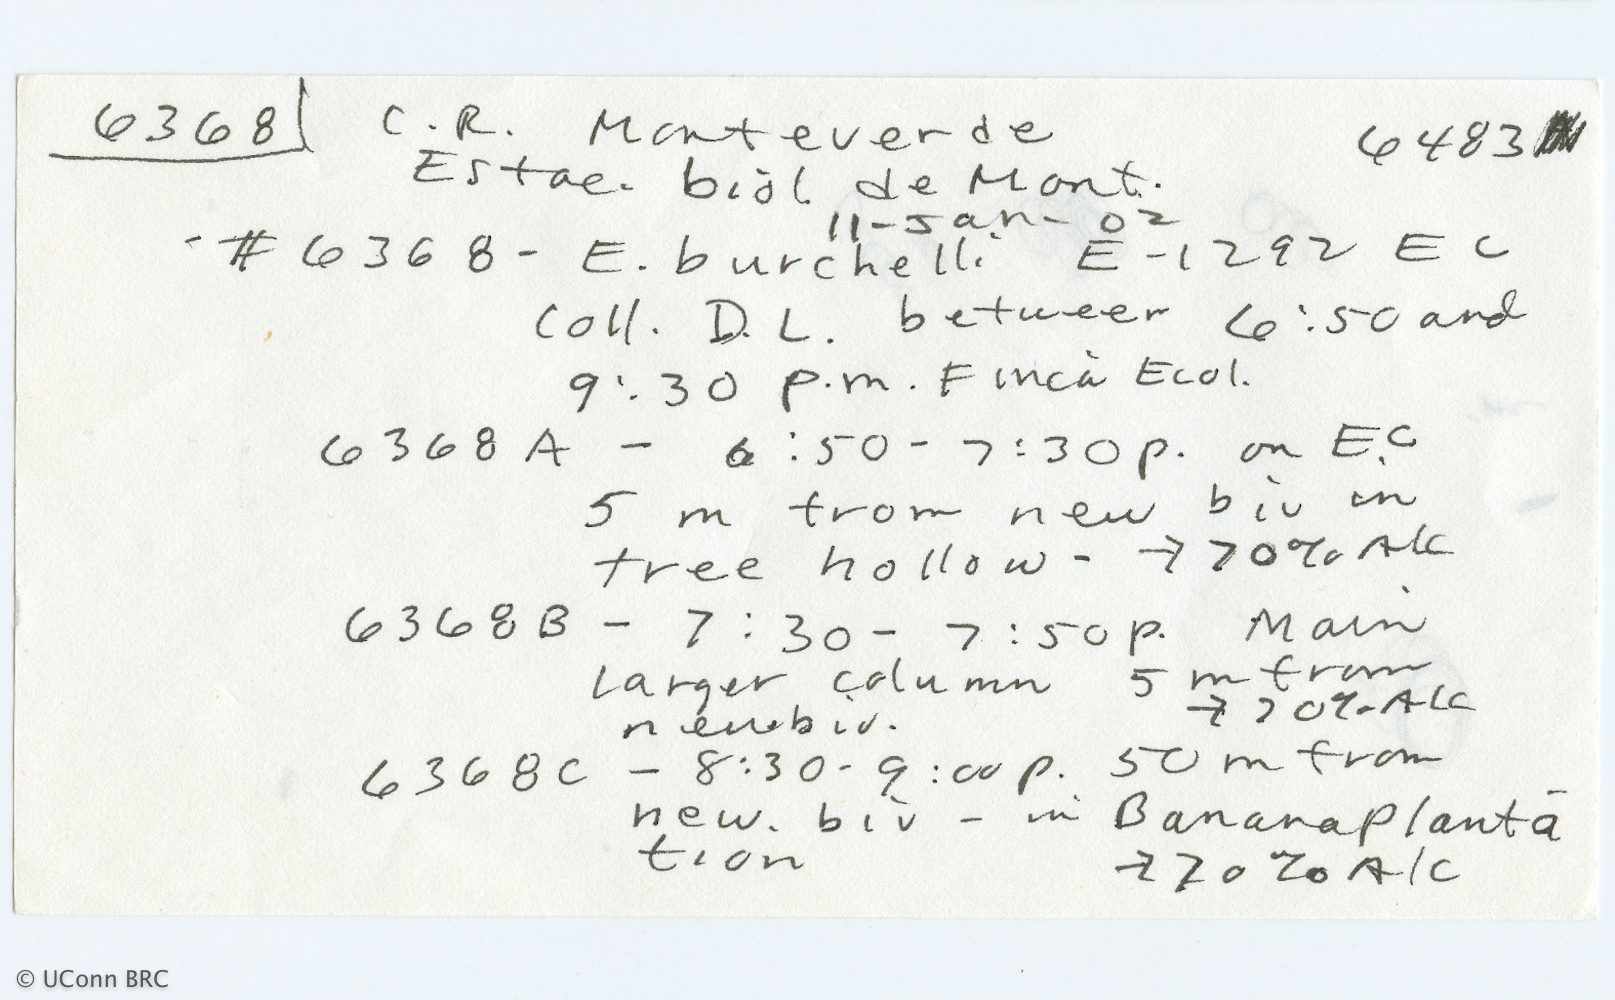 6368 C.R. Monteverde 6483
Estac. biol. de Mont.
11-Jan-02
#6368 - E. burchelli E-1292 EC
Coll. D.L. between 6:50 and
9:30 p.m. Finca Ecol.
6368A - 6:50-7:30p. on E.C
5 m from new biv in
tree hollow - → 70% Alc
6368B - 7:30-7:50p. Main
larger column 5 m from
new biv. → 70% Alc
6368C - 8:30-9:00p. 50m from
new. biv - in Banana planta
tion → 70% Alc
© UConn BRC